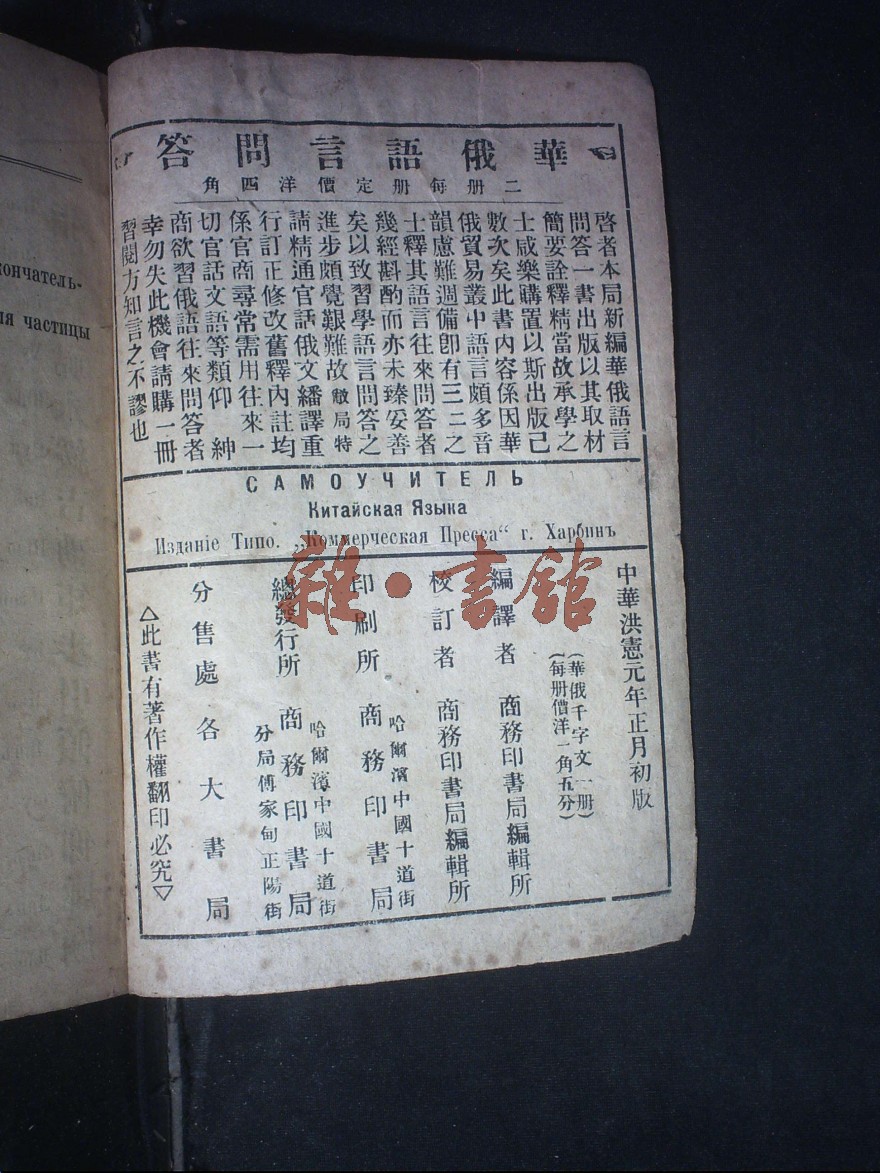 華俄語言問答
二册每册定價洋四角
啓者本局新編華俄語言
問答一書出版以其取材
簡要詮釋精當故承學之
士咸樂購置以斯出版已
數次矣此書内容係因華
俄貿易叢中語言頗多音
韻慮難週備卽有三二之
士釋其語言往來問答者
幾經斟酌而亦未臻妥善
矣以致習學語言問答之
進步頗覺艱難故敝局特
請精通官話俄文繙譯重
行訂正修改舊釋內註均
係官商尋常需用往來一
切官話文語等類仰 紳
商欲習俄語往來問答者
幸勿失此機會請購一冊
習閱方知言之不謬也
САМОУЧИТЕЛЬ
Китайская Языка
Изданіе Типо. „Коммерческая Пресса“ г. Харбинъ
中華洪憲元年正月初版
(華俄千字文一册)
(每册價洋一角五分)
編譯者 商務印書局編輯所
校訂者 商務印書局編輯所
哈爾濱中國十道街
印刷所 商務印書局
哈爾濱中國十道街
總發行所 商務印書局
分局傅家甸正陽街
分售處各大書局
△此書有著作權翻印必究▽
雜·書館
кончатель-
ия частицы